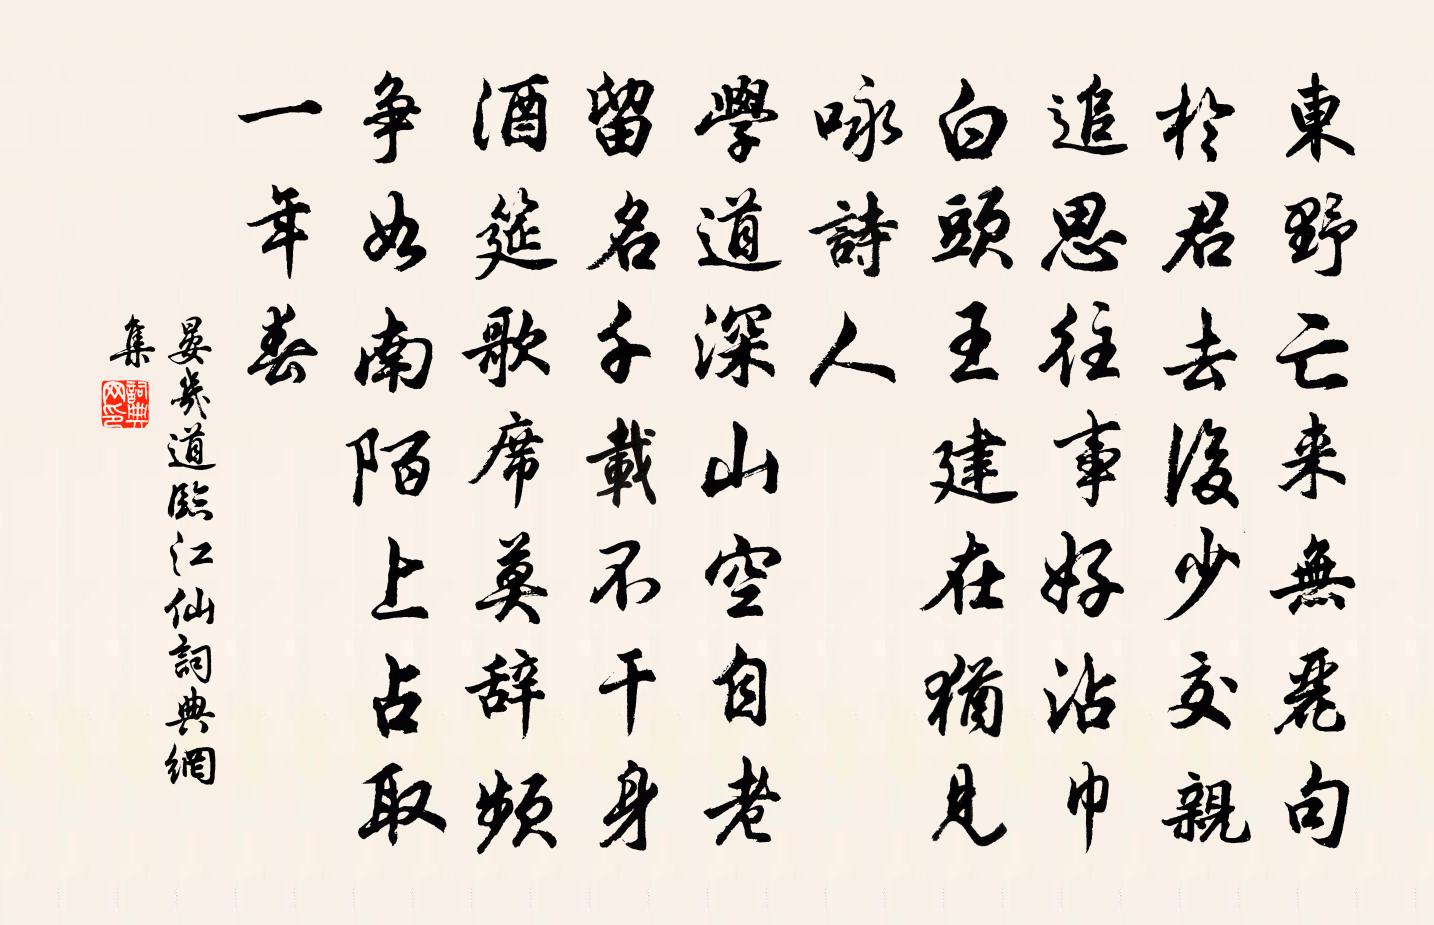 東野亡来無麗句
於君去後少交親
追思往事好沾巾
白頭王建在猶見
咏詩人
學道深山空自老
留名千載不干身
酒筵歌席莫辞頻
争如南陌上占取
一年春
晏幾道臨江仙詞典網
集
詞典網印